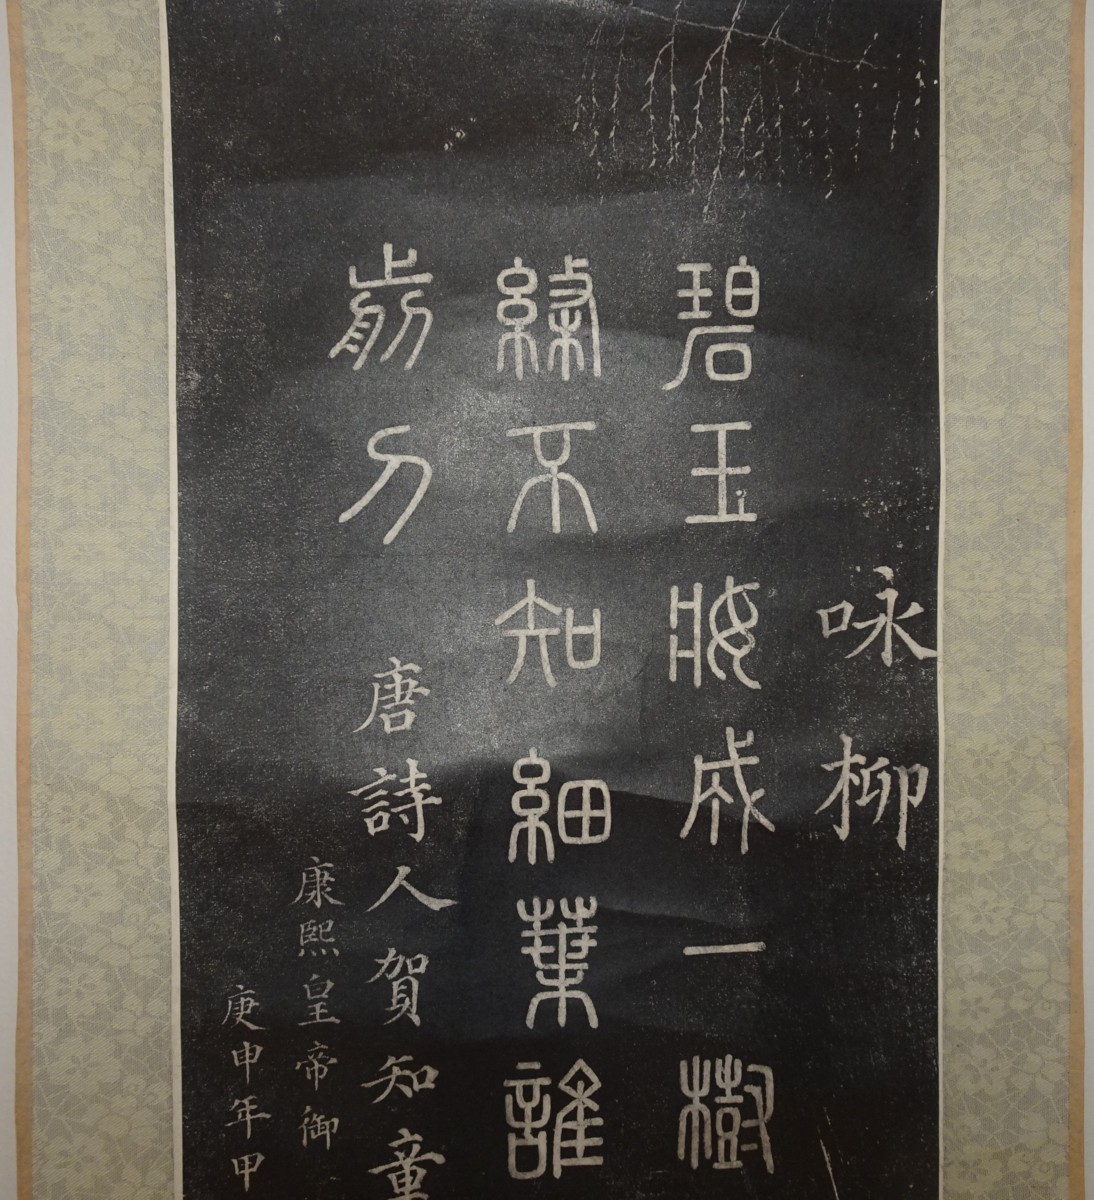 咏柳
碧玉妝成一樹
絛不知細葉誰
剪刀 唐詩人賀知章
康熙皇帝御
庚申年甲